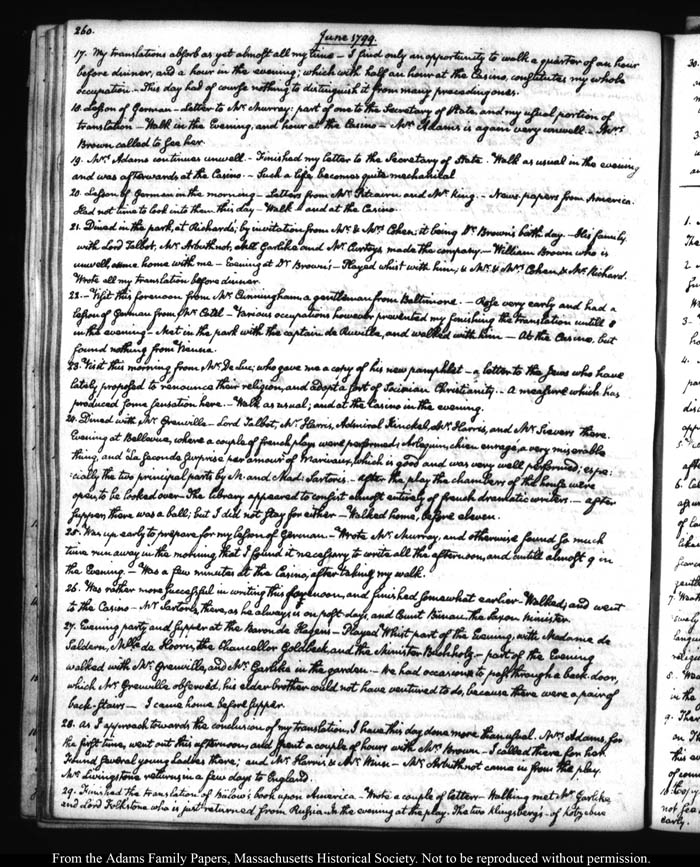 260.
June 1799.
17. My translations absorb as yet almost all my time - I find only an opportunity to walk a quarter of an hour
before dinner, and a hour in the evening; which with half an hour at the Casino, constitutes my whole
occupation - This day had of course nothing to distinguish it from many preceding ones.
18. Lesson of German - Letter to Mr Murray: part of one to the Secretary of State, and my usual portion of
translation - Walk in the Evening, and hour at the Casino - Mrs Adams is again very unwell. - Mrs
Brown called to see her.
19. Mrs Adams continues unwell. - Finished my letter to the Secretary of State. Walk as usual in the evening
and was afterwards at the Casino. - Such a life becomes quite mechanical.
20. Lesson of German in the morning - Letters from Mr Pitcairn and Mr King. - News papers from America.
Had not time to look into them this day - Walk and at the Casino.
21. Dined in the park, at Richards', by invitation from Mr & Mrs Cohen; it being Dr Brown's birth day - His family
with Lord Talbot, Mr Arbuthnot, Garlike and Mr Curtoys made the company. - William Brown who is
unwell, came home with me - Evening at Dr Brown's - Played whist with him, & Mr & Mrs Cohen & Mr Richard.
Wrote all my translation before dinner.
22. - Visit this forenoon from Mr Cunningham a gentleman from Baltimore. - Rose very early and had a
lesson of German from Mr Catel - Various occupations however prevented my finishing the translation untill 8
in the evening - Met in the park with the captain de Ruville, and walked with him - At the Casino, but
found nothing from Vienna.
23. Visit this morning from Mr De Luc, who gave me a copy of his new pamphlet - a letter to the Jews who have
lately proposed to renounce their religion, and adopt a sort of Socinian Christianity. - A measure which has
produced some sensation here. - Walk as usual; and at the Casino in the evening.
24. Dined with Mr Grenville - Lord Talbot, Mr Harris, Admiral Kinckel, Mr Harris, and Mr Sievers there.
Evening at Bellevue, where a couple of french plays were performed; Arlequin, chien enragé, a very miserable
thing, and La seconde surprise de l'amour of Marivaux, which is good and was very well performed; espe-
:cially the two principal parts by M. and Mad. Sartoris. - After the play the chambers of the house were
open, to be looked over - The library appeared to consist almost entirely of french dramatic writers. - After
supper, there was a ball; but I did not stay for either - Walked home, before eleven.
25. Was up early to prepare for my lesson of German - Wrote Mr Murray, and otherwise found so much
time run away in the morning, that I found it necessary to write all the afternoon, and untill almost 9 in
the Evening - Was a few minutes at the Casino, after taking my walk.
26. Was rather more successful in writing this forenoon, and finished somewhat earlier - Walked, and went
to the Casino - Mr Sartoris, there, as he always is on post-days, and Count Bünau the Saxon Minister.
27. Evening party and supper at the Baron de Hagens - Played Whist part of the Evening, with Madame de
Saldern, Mlle de Hoorn, the Chancellor Goldbeck and the Minister Buchholz - part of the Evening
walked with Mr Grenville, and Mr Garlike in the garden - We had occasion to pass through a back-door,
which Mr Grenville observed, his elder brother would not have ventured to do, because there were a pair of
back-stairs - I came home before supper.
28. As I approach towards the conclusion of my translation, I have this day done more than usual. Mrs Adams, for
the first time, went out this afternoon, and spent a couple of hours with Mrs Brown - I called there for her
Found several young ladies there; and Mr Harris & Mr - Mr Arbuthnot came in from the play.
Mr Livingstone returns in a few days to England.
29. Finished the translation of Bülow's book upon America - Wrote a couple of letters - Walking met Mr Garlike
and Lord Folkstone who is just returned from Russia. In the evening at the play. The two Klingsbergs - of Kotzebue
From the Adams Family Papers, Massachusetts Historical Society. Not to be reproduced without permission.